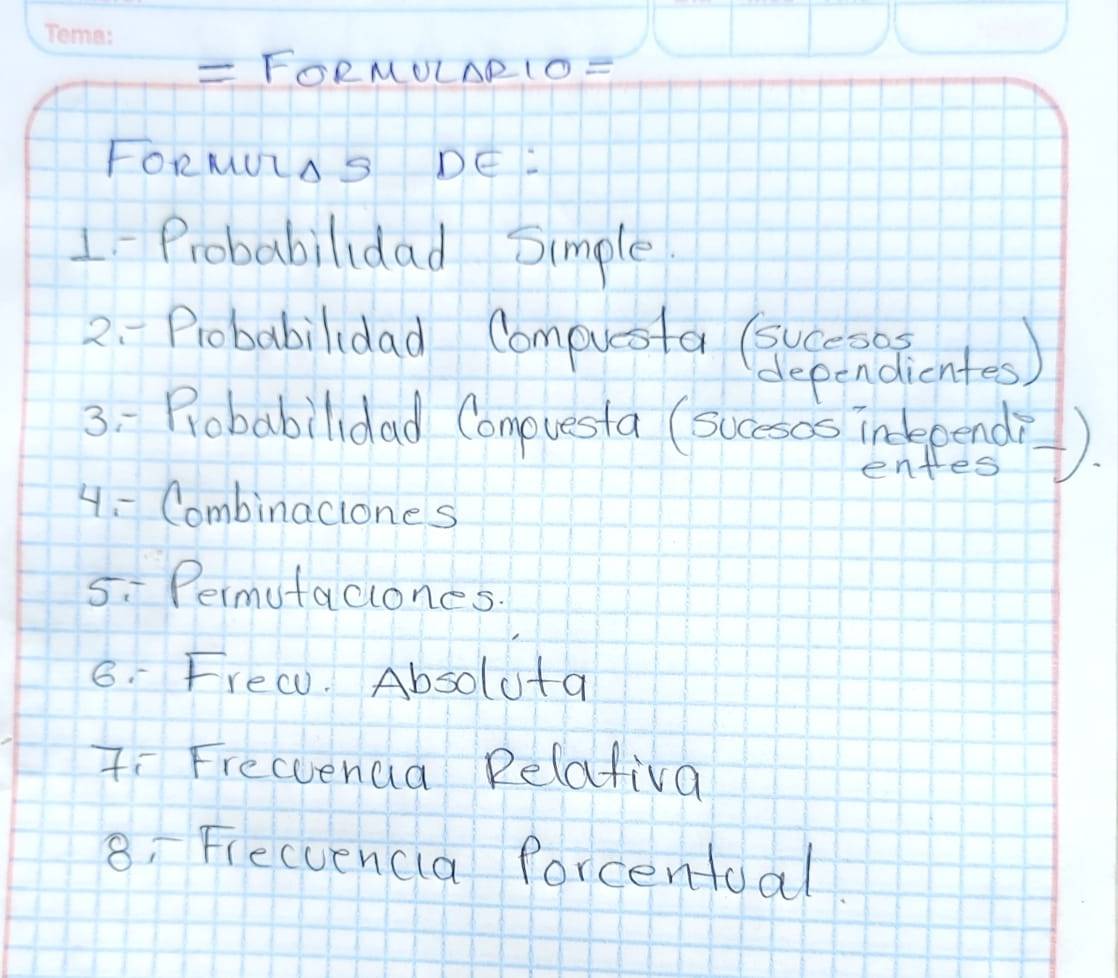 Tema:
= FORMULARIO =
FORMULAS DE:
1.- Probabilidad Simple.
2.- Probabilidad Compuesta (sucesos
dependientes)
3.- Probabilidad Compuesta (sucesos independi-
entes).
4.- Combinaciones
5.- Permutaciones.
6.- Frecu. Absoluta
7.- Frecuencia Relativa
8.- Frecuencia Porcentual.